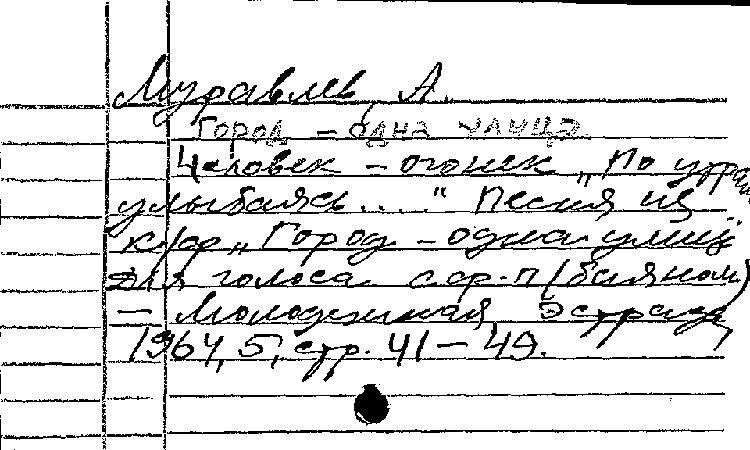 Муравлев, А.
Город – одна улица
Человек – огонек „По утрам
улыбаясь...." Песня из
к/ф „Город – одна улица"
Для голоса с ф-п (баяном)
– Молодежная эстрада,
1964, 5, стр. 41–49.